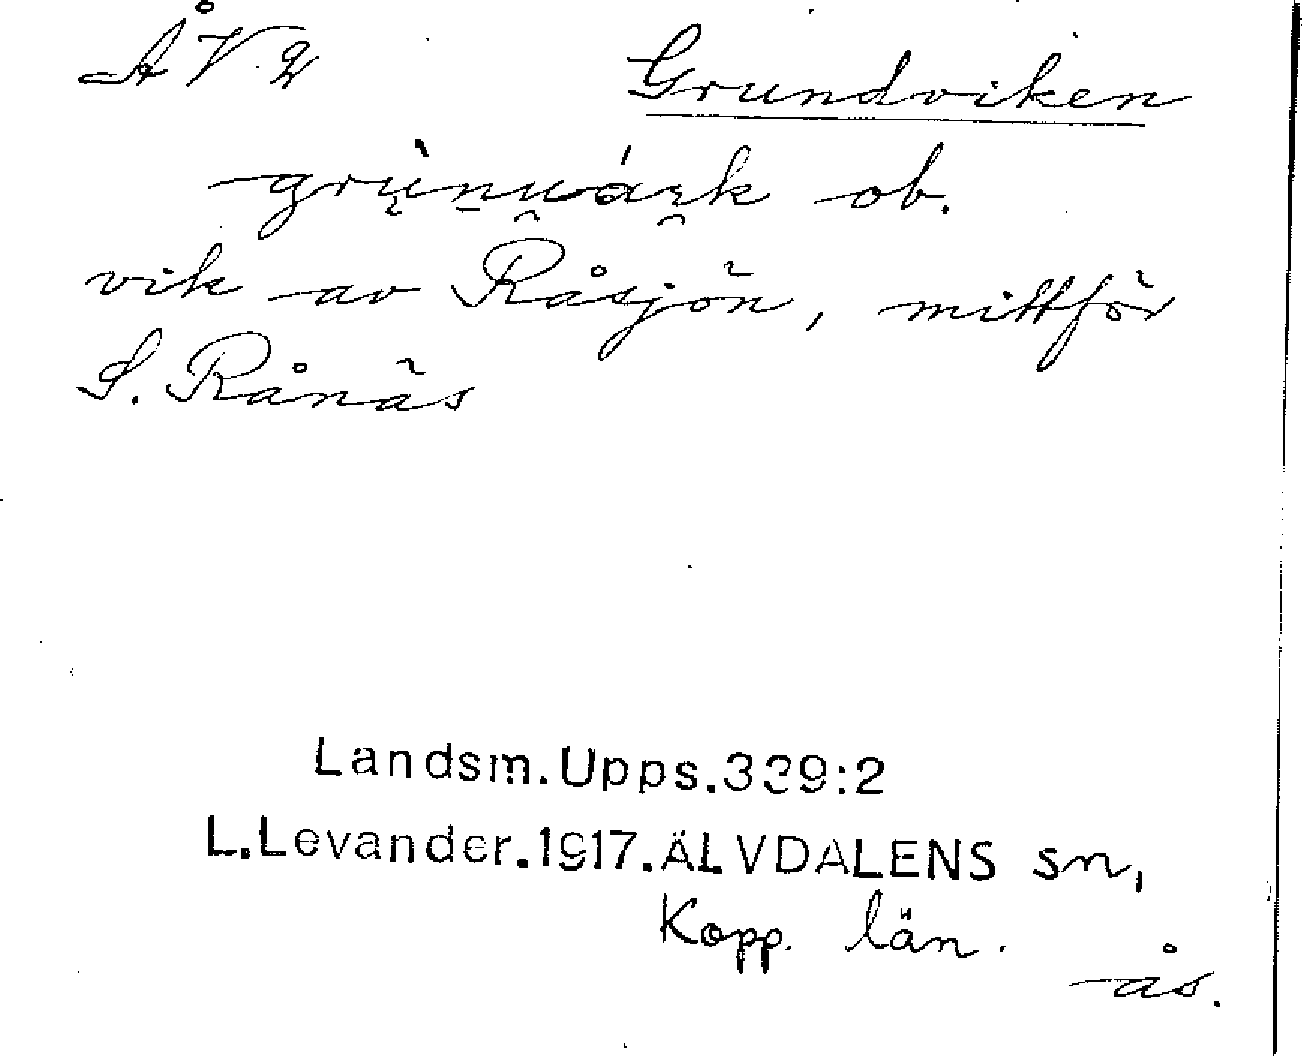 ÅV 2 Grundviken
grùnwárk ob.
vik av Råsjön, mittför
S. Rånäs
Landsm.Upps.339:2
L.Levander.1917.ÄLVDALENS sn,
Kopp. län.
ås.